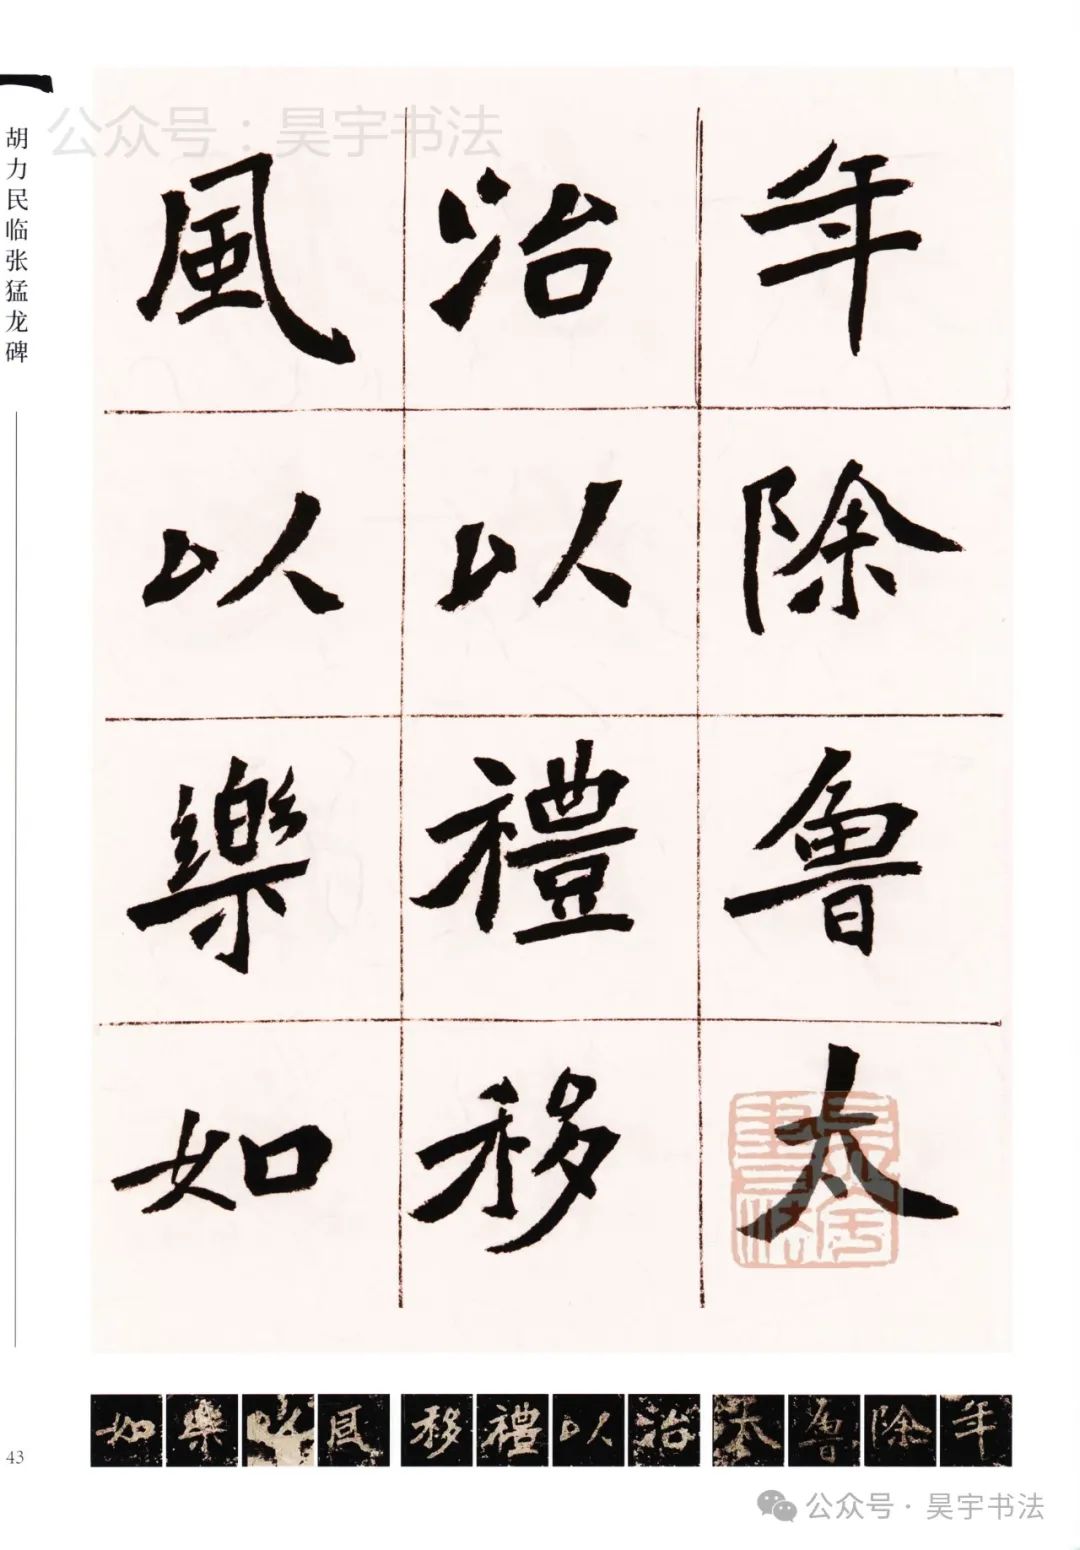 公众号：昊宇书法
胡力民临张猛龙碑
年除鲁太
治以禮移
風以樂如
如樂以風移禮以治太鲁除年
43
公众号·昊宇书法